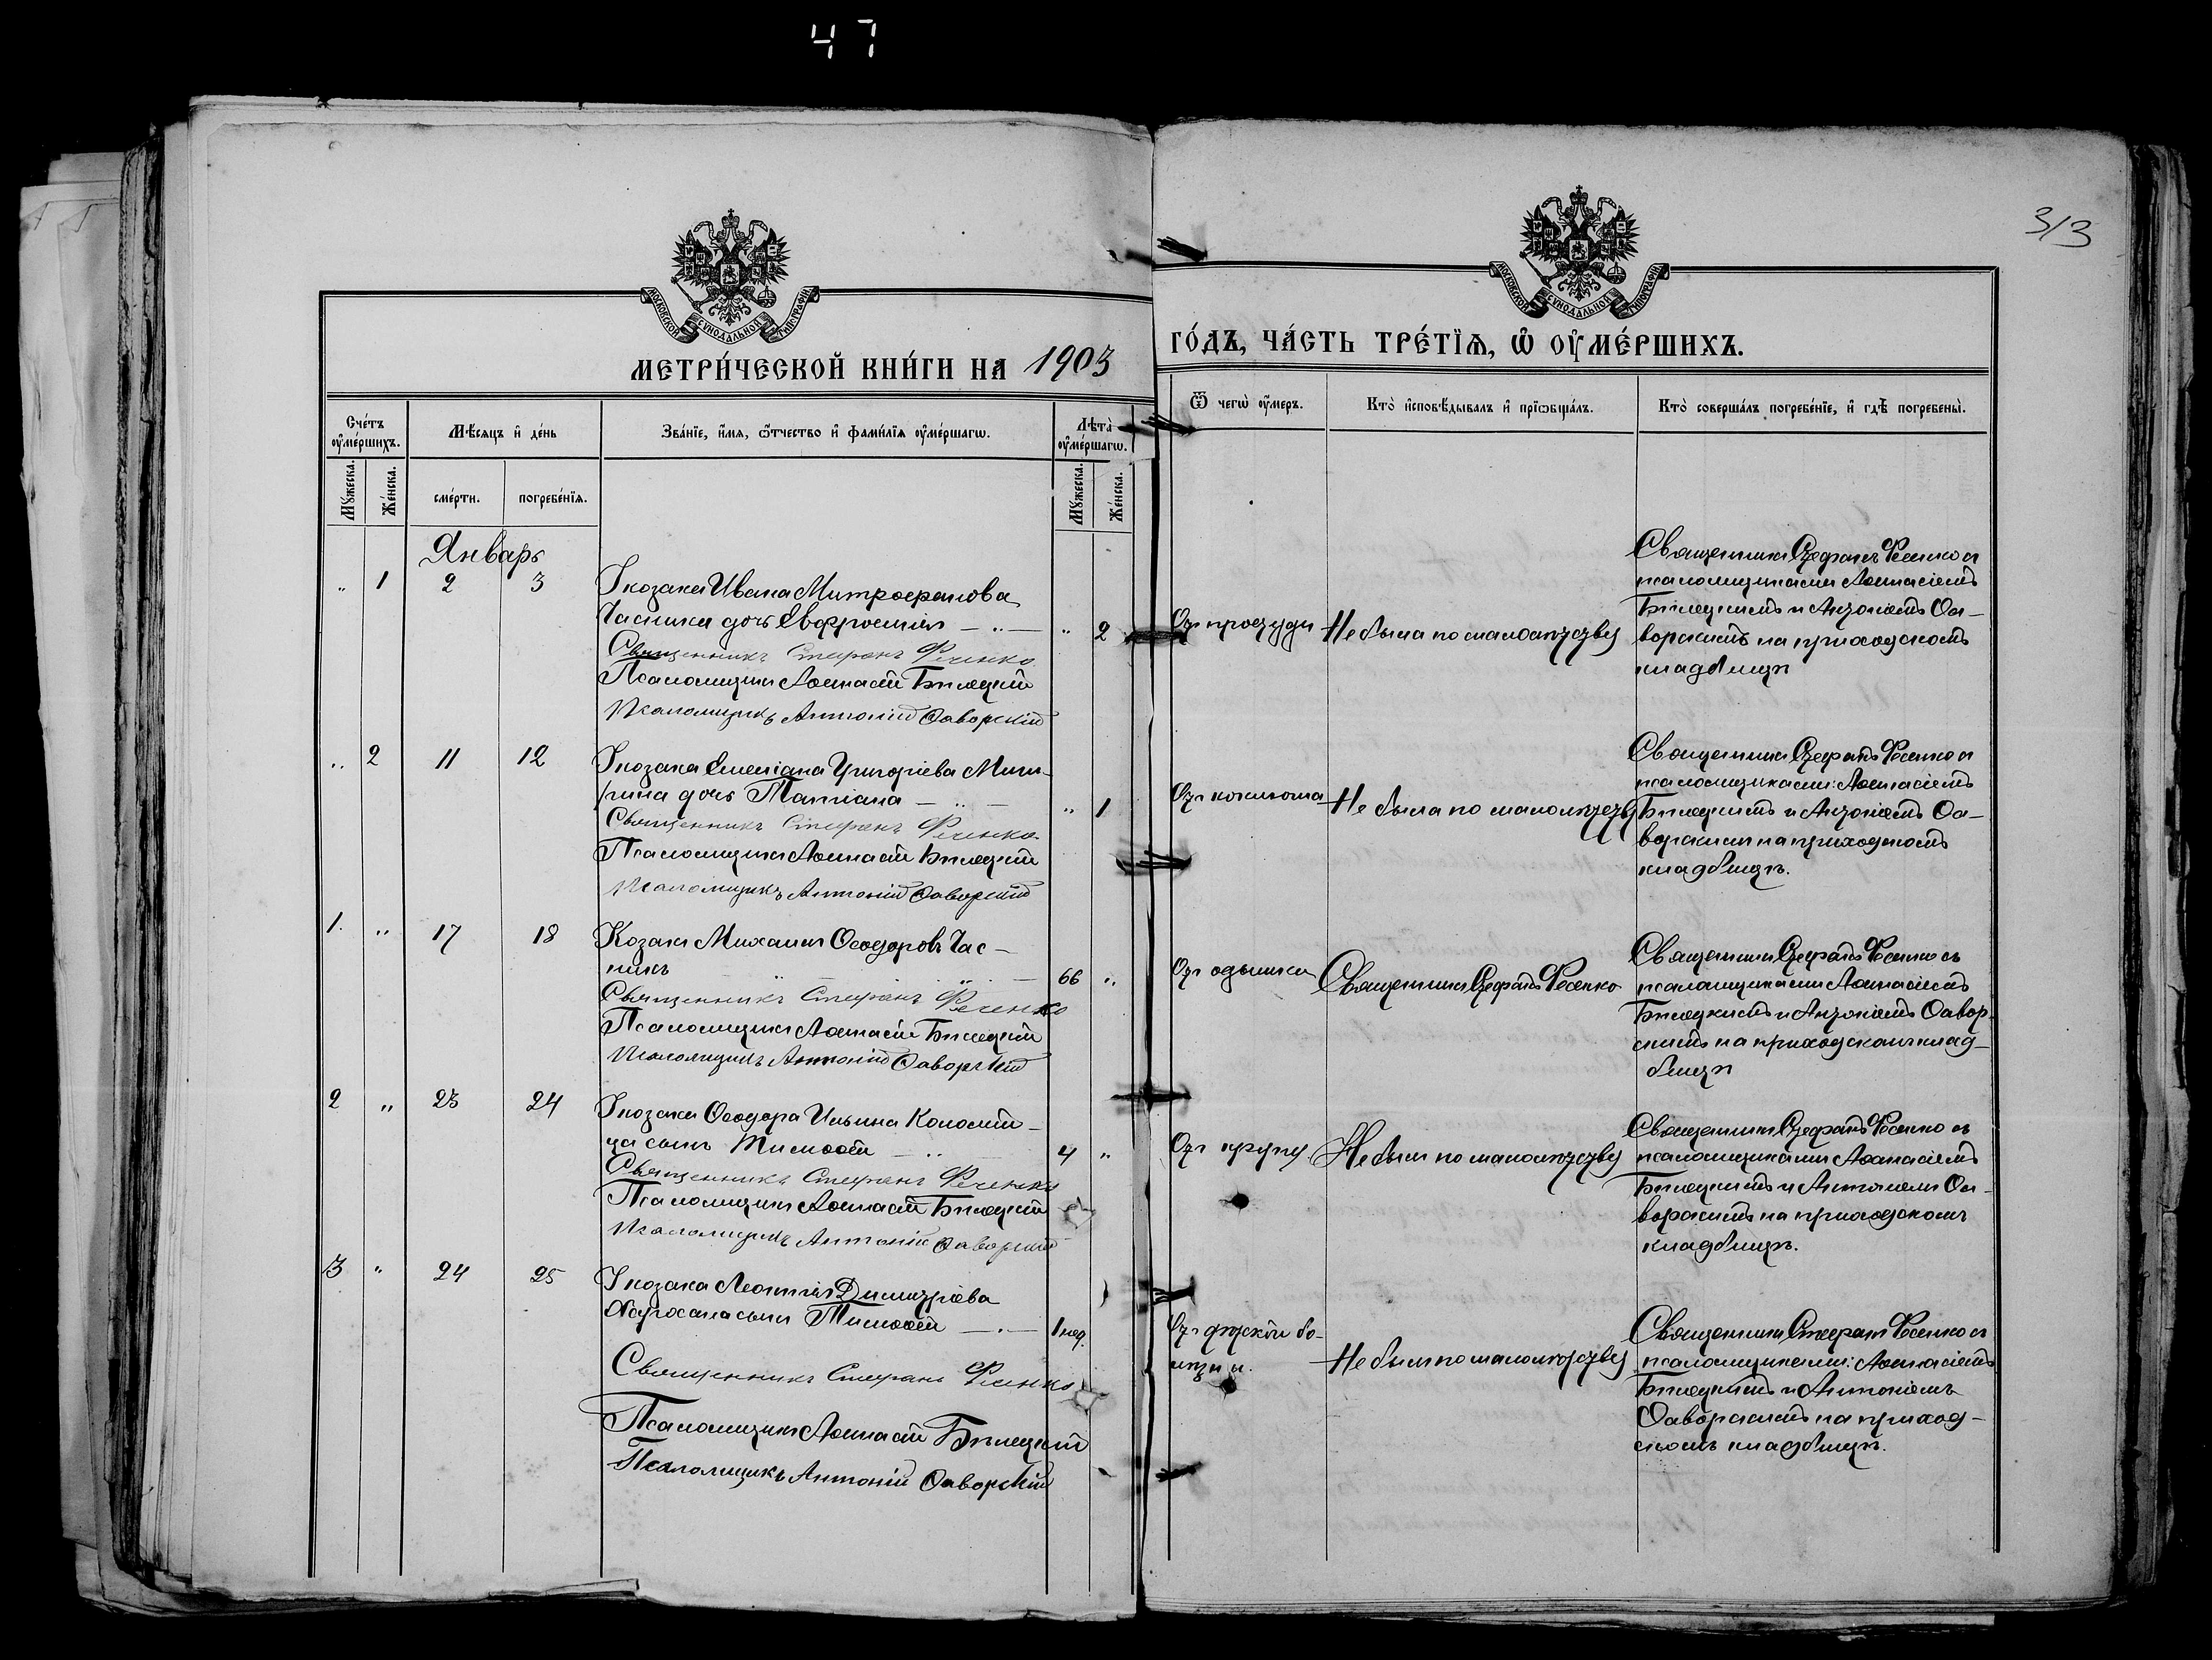 47
313
МОСКОВСКОЙ СѴНОДАЛЬНОЙ ТИПОГРАФІИ
МОСКОВСКОЙ СѴНОДАЛЬНОЙ ТИПОГРАФІИ
МЕТРИ́ЧЕСКОЙ КНИ́ГИ НА 1903
ГО́ДЪ, ЧА́СТЬ ТРЕ́ТЇѦ, Ѡ҆ ОУ҆МЕ́РШИХЪ.
Сче́тъ оу҆ме́ршихъ.
Мѣ́сяцъ и҆ де́нь
Зва́нїе, и҆́мя, ѻ҆́тчество и҆ фами́лїя оу҆ме́ршагѡ.
Лѣта̀ оу҆ме́ршагѡ.
Ѿ чегѡ̀ оу҆́меръ.
Кто̀ и҆сповѣ́дывалъ и҆ прїѡбща́лъ.
Кто̀ соверша́лъ погребе́нїе, и҆ гдѣ̀ погребены̀.
Мꙋ́жеска.
Же́нска.
сме́рти.
погребе́нїя.
Мꙋ́жеска.
Же́нска.
Январь
„ 1 2 3
Козака Ивана Митрофанова
Часника дочь Евфросинія — „ —
„ 2
Священникъ Стефанъ Фесенко
Псаломщикъ Аѳанасій Бѣлецкій
Псаломщикъ Антоній Ѳаворскій
Отъ простуды
Не была по малолѣтству
Священникъ Стефанъ Фесенко съ
псаломщиками Аѳанасіемъ
Бѣлецкимъ и Антоніемъ Ѳа-
ворскимъ на приходскомъ
кладбищѣ
„ 2 11 12
Козака Емеліана Григоріева
дочь Татіана — „ —
„ 1
Священникъ Стефанъ Фесенко
Псаломщикъ Аѳанасій Бѣлецкій
Псаломщикъ Антоній Ѳаворскій
Отъ коклюша
Не была по малолѣтству
Священникъ Стефанъ Фесенко съ
псаломщиками: Аѳанасіемъ
Бѣлецкимъ и Антоніемъ Ѳа-
ворскимъ на приходскомъ
кладбищѣ.
1. „ 17 18
Козакъ Михаилъ Ѳеодоровъ Час-
никъ — „ —
66 „
Священникъ Стефанъ Фесенко
Псаломщикъ Аѳанасій Бѣлецкій
Псаломщикъ Антоній Ѳаворскій
Отъ одышки
Священникъ Стефанъ Фесенко
Священникъ Стефанъ Фесенко съ
псаломщиками Аѳанасіемъ
Бѣлецкимъ и Антоніемъ Ѳавор-
скимъ на приходскомъ клад-
бищѣ
2 „ 23 24
Козака Ѳеодора Ильина Коломій-
ца сынъ Тимоѳей — „ —
4 „
Священникъ Стефанъ Фесенко
Псаломщикъ Аѳанасій Бѣлецкій
Псаломщикъ Антоній Ѳаворскій
Отъ крупу
Не былъ по малолѣтству
Священникъ Стефанъ Фесенко съ
псаломщиками Аѳанасіемъ
Бѣлецкимъ и Антоніемъ Ѳа-
ворскимъ на приходскомъ
кладбищѣ.
3 „ 24 25
Козака Леонтія Димитріева
сынъ Тимоѳей — „ —
1 нед.
Священникъ Стефанъ Фесенко
Псаломщикъ Аѳанасій Бѣлецкій
Псаломщикъ Антоній Ѳаворскій
Отъ дѣтской бо-
лѣзни.
Не былъ по малолѣтству
Священникъ Стефанъ Фесенко съ
псаломщиками: Аѳанасіемъ
Бѣлецкимъ и Антоніемъ
Ѳаворскимъ на приход-
скомъ кладбищѣ.